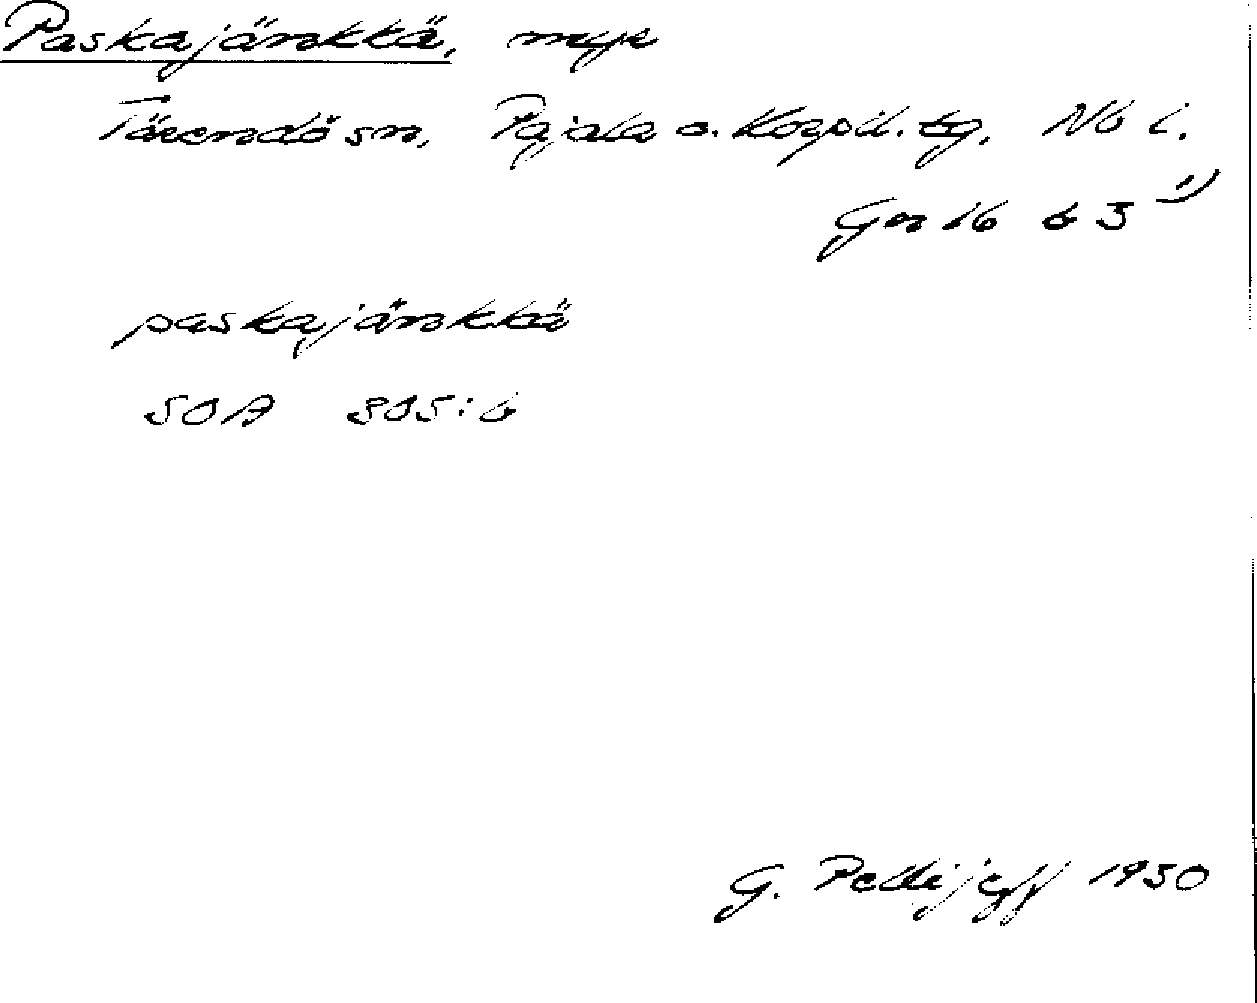 Paskajänkkä, myr
Tärendö sn, Pajala o. Korpil. tg. Nb l.
Gr 16 b 3 1)
paskajänkkä
SOA 305:6
G. Pellijeff 1950